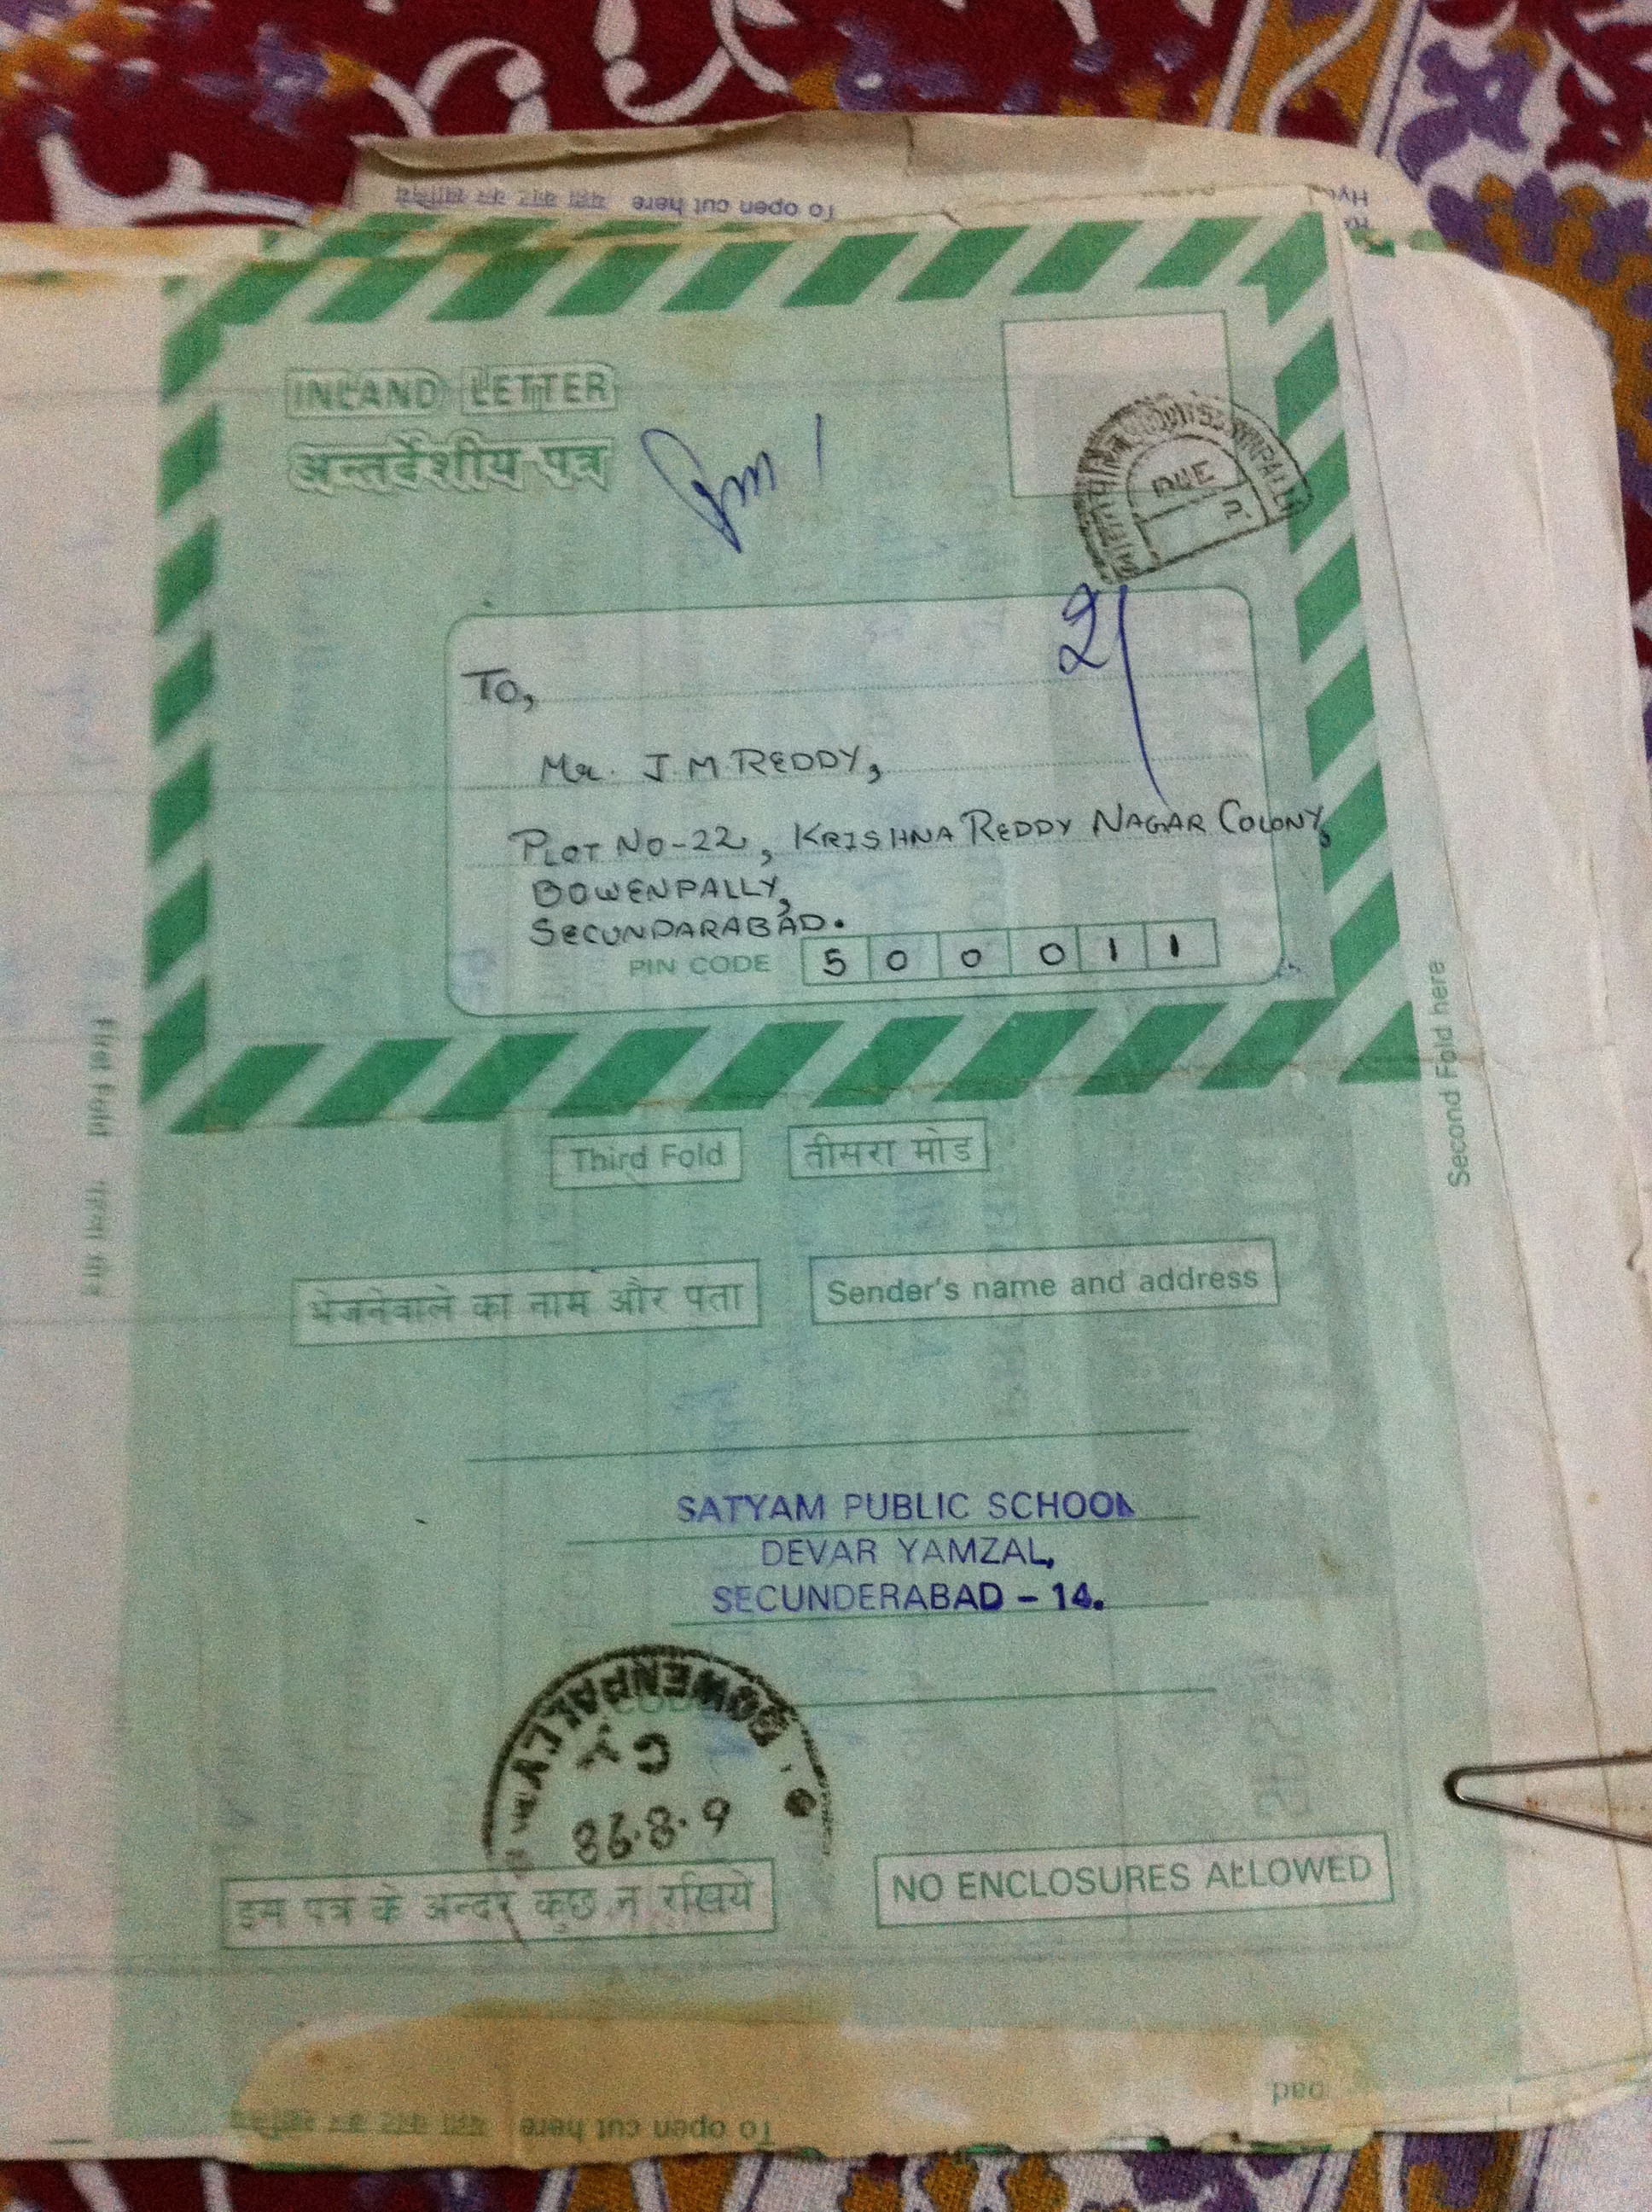 To open cut here
INLAND LETTER
अन्तर्देशीय पत्र
DUE
2/
To,
Mr. J. M REDDY,
PLOT NO-22, KRISHNA REDDY NAGAR COLONY,
BOWENPALLY,
SECUNDARABAD.
PIN CODE 5 0 0 0 1 1
First Fold
Second Fold here
Third Fold तीसरा मोड
भेजनेवाले का नाम और पता Sender's name and address
SATYAM PUBLIC SCHOOL
DEVAR YAMZAL,
SECUNDERABAD - 14.
BOWENPALLY
इस पत्र के अन्दर कुछ न रखिये NO ENCLOSURES ALLOWED
To open cut here